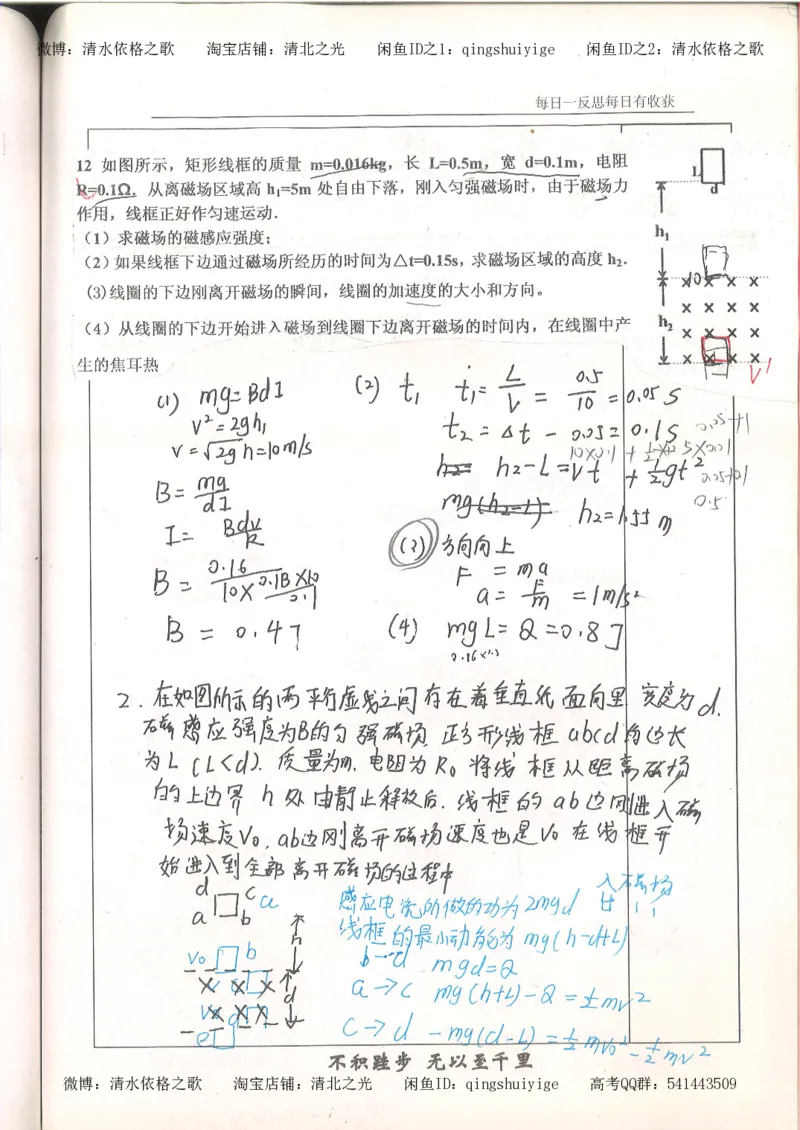 微博：清水依格之歌　淘宝店铺：清北之光　闲鱼ID之1：qingshuiyige　闲鱼ID之2：清水依格之歌
每日一反思每日有收获
12 如图所示，矩形线框的质量 m=0.016kg，长 L=0.5m，宽 d=0.1m，电阻
R=0.1Ω．从离磁场区域高 h₁=5m 处自由下落，刚入匀强磁场时，由于磁场力
作用，线框正好作匀速运动．
（1）求磁场的磁感应强度；
（2）如果线框下边通过磁场所经历的时间为△t=0.15s，求磁场区域的高度 h₂．
(3)线圈的下边刚离开磁场的瞬间，线圈的加速度的大小和方向。
（4）从线圈的下边开始进入磁场到线圈下边离开磁场的时间内，在线圈中产
生的焦耳热
L
d
h₁
10
h₂
V'
(1) mg=BdI
v²=2gh₁
v=√2gh=10m/s
B=mg/dI
I=Bdv/R
B = 0.4T
(2) t₁ t₁=L/V=0.5/10=0.05 s
t₂=Δt-0.05=0.1s
h₂-L=vt+½gt²
h₂=1.55m
(3) 方向向上
F=ma
a=F/m=1m/s²
(4) mgL=Q=0.8J
2. 在如图所示的两平行虚线之间存在着垂直纸面向里 宽度为d.
磁感应强度为B的匀强磁场 正方形线框abcd的边长
为L (L<d). 质量为m. 电阻为R₀ 将线框从距离磁场
的上边界 h 处由静止释放后. 线框的ab边刚进入磁
场速度V₀, ab边刚离开磁场速度也是V₀ 在线框开
始进入到全部离开磁场的过程中
d c a
a b
h
V₀ b
d
感应电流所做的功为2mgd
入磁场
线框的最小动能为mg(h-d+L)
b→d mgd=Q
a→c mg(h+L)-Q=½mv²
c→d -mg(d-L)=½mv₀²-½mv²
不积跬步 无以至千里
微博：清水依格之歌　淘宝店铺：清北之光　闲鱼ID：qingshuiyige　高考QQ群：541443509